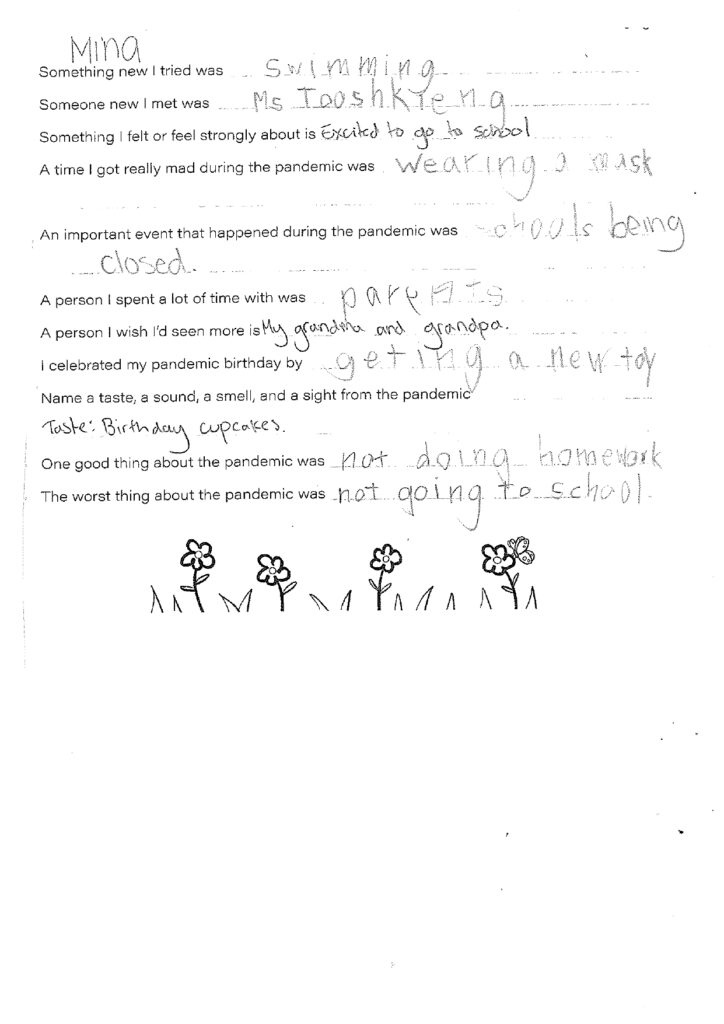 Mina
Something new I tried was swimming
Someone new I met was Ms Tooshkieng
Something I felt or feel strongly about is Excited to go to school
A time I got really mad during the pandemic was wearing a mask
An important event that happened during the pandemic was schools being
closed.
A person I spent a lot of time with was parents
A person I wish I'd seen more is My grandma and grandpa.
I celebrated my pandemic birthday by geting a new toy
Name a taste, a sound, a smell, and a sight from the pandemic
Taste: Birthday cupcakes.
One good thing about the pandemic was not doing homework
The worst thing about the pandemic was not going to school.